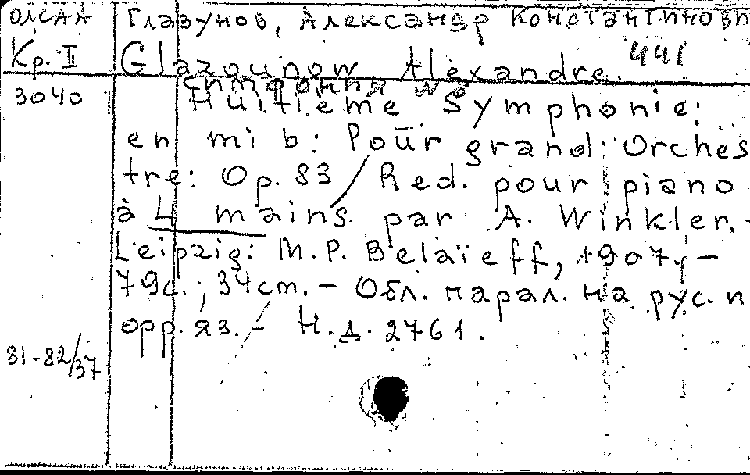 ОИСАА Глазунов, Александр Константинови
Кр. II Glazounow Alexandre. 441
3040 Симфония №8
Huitieme Symphonie:
en mi b: Pour grand Orches
tre: Op. 83 Red. pour piano
à 4 mains par A. Winkler.-
Leipzig: M.P. Belaïeff, 1907, -
79с.; 34cm. - Обл. парал. на рус. и
орр. яз. - Н.д. 2761.
31-82/37